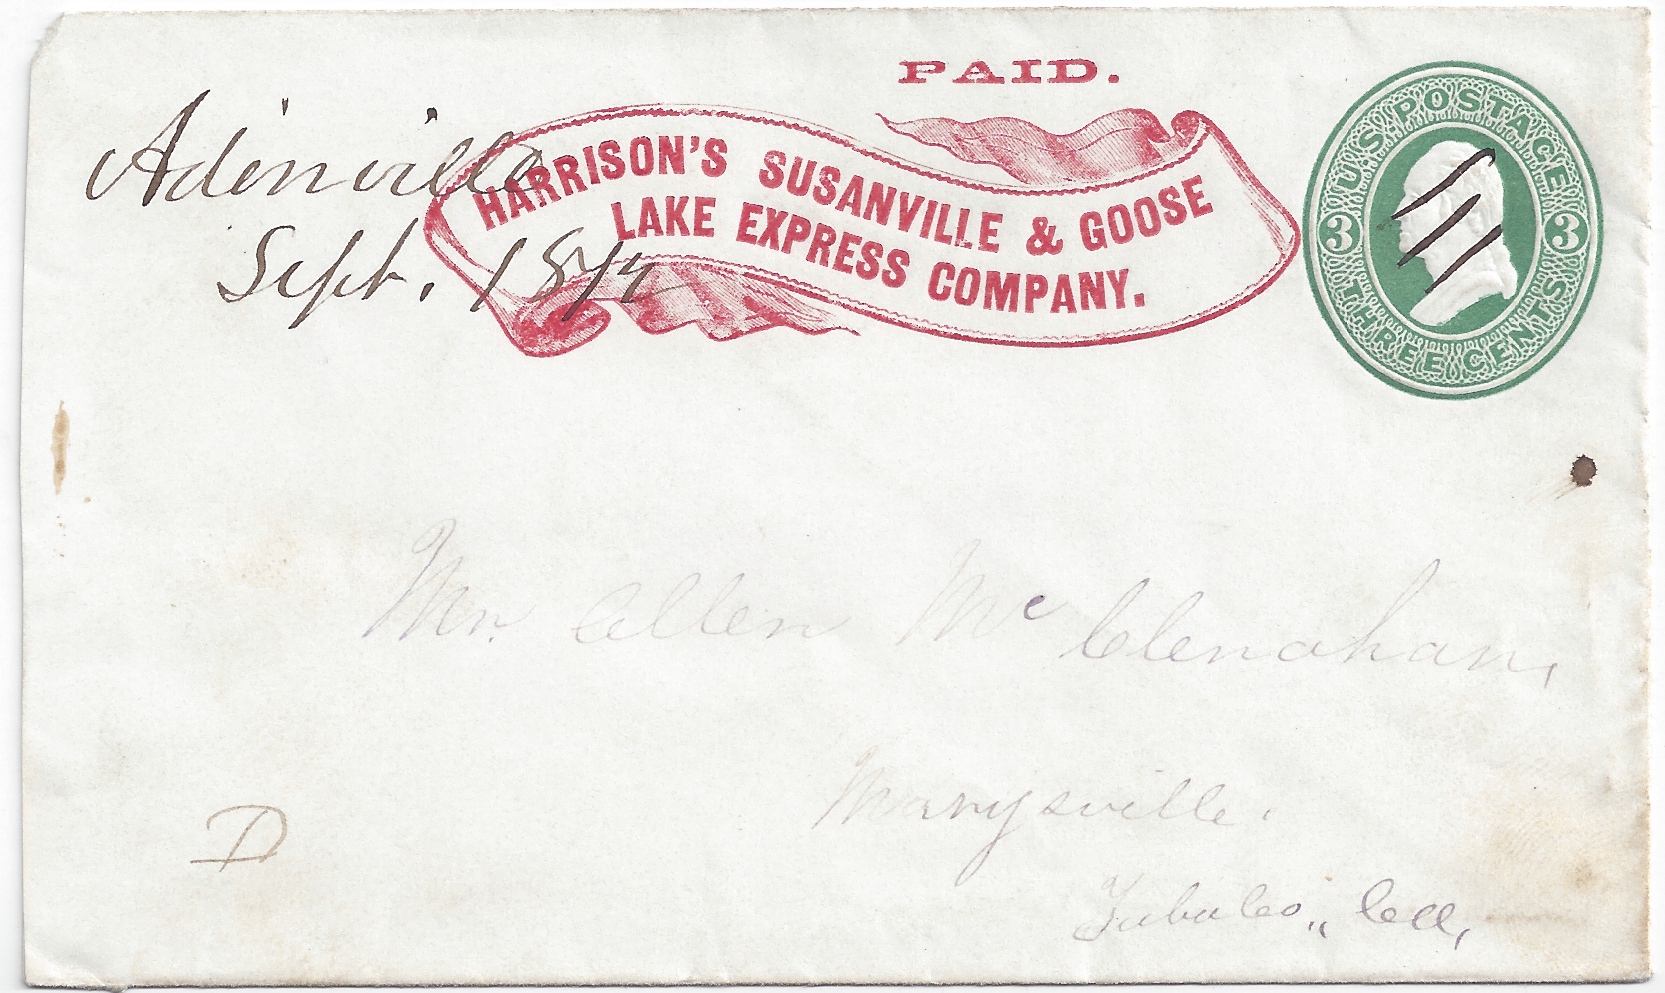 PAID.
HARRISON'S SUSANVILLE & GOOSE
LAKE EXPRESS COMPANY.
U.S. POSTAGE
3 3
THREE CENTS
Adinville
Sept. 1
Mr. Allen McClenahan,
Marysville.
Yuba Co,, Cal,
D